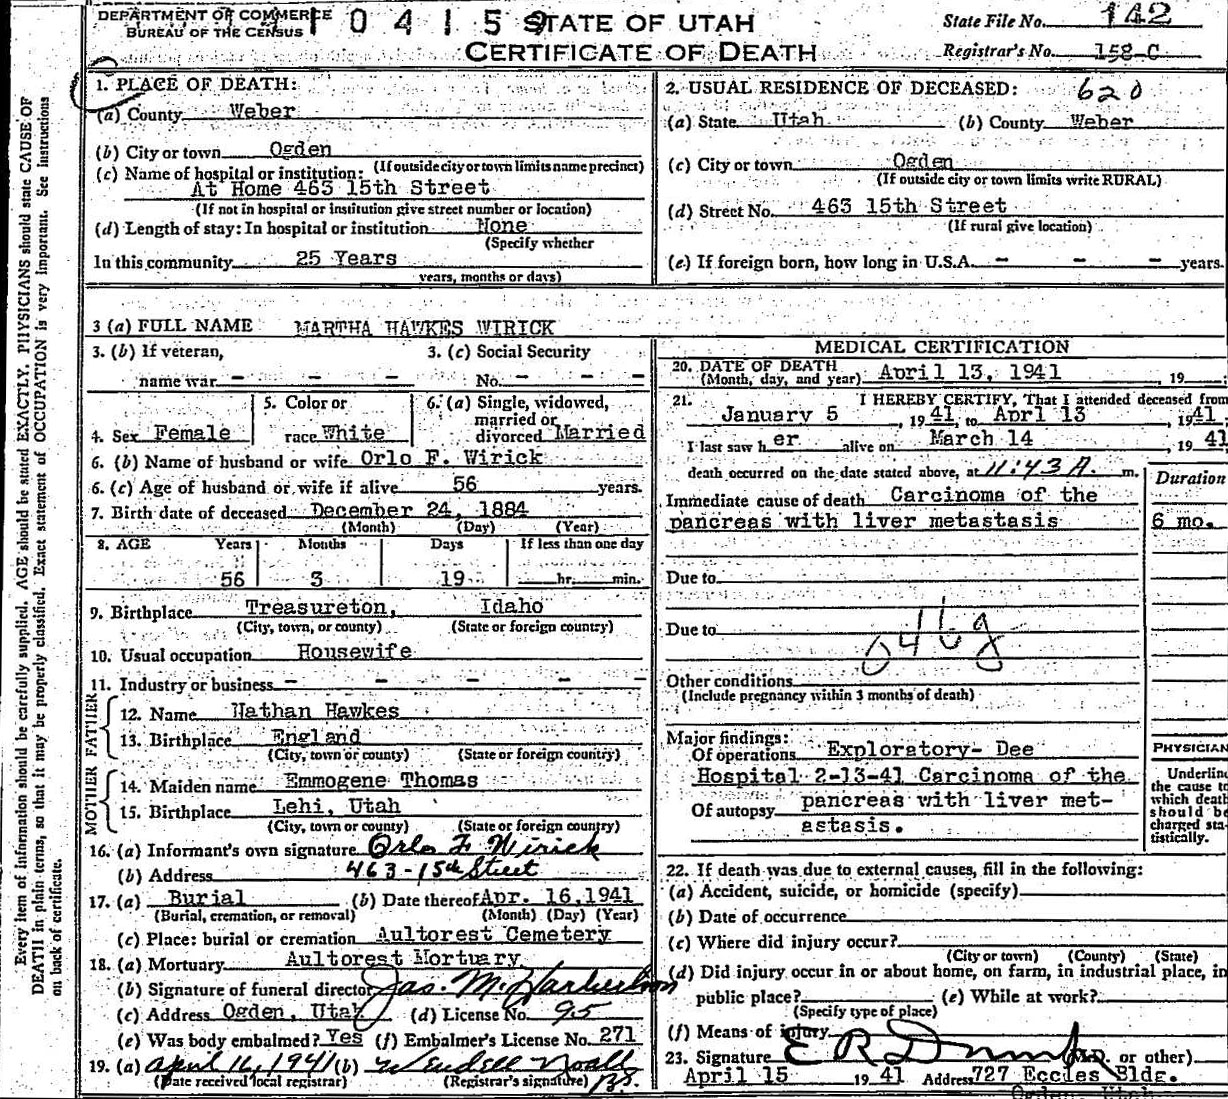 DEPARTMENT OF COMMERCE
BUREAU OF THE CENSUS
1 0 4 1 5 9
STATE OF UTAH
CERTIFICATE OF DEATH
State File No. 142
Registrar's No. 158-C
Every item of information should be carefully supplied. AGE should be stated EXACTLY. PHYSICIANS should state CAUSE OF
DEATH in plain terms, so that it may be properly classified. Exact statement of OCCUPATION is very important. See Instructions
on back of certificate.
1. PLACE OF DEATH:
(a) County Weber
(b) City or town Ogden
(If outside city or town limits name precinct)
(c) Name of hospital or institution:
At Home 463 15th Street
(If not in hospital or institution give street number or location)
(d) Length of stay: In hospital or institution None
(Specify whether
In this community 25 Years
years, months or days)
2. USUAL RESIDENCE OF DECEASED: 620
(a) State Utah (b) County Weber
(c) City or town Ogden
(If outside city or town limits write RURAL)
(d) Street No. 463 15th Street
(If rural give location)
(e) If foreign born, how long in U.S.A. - - - years.
3 (a) FULL NAME MARTHA HAWKES WIRICK
3. (b) If veteran,
name war - - -
3. (c) Social Security
No. - - -
4. Sex Female
5. Color or
race White
6. (a) Single, widowed,
married or
divorced Married
6. (b) Name of husband or wife Orlo F. Wirick
6. (c) Age of husband or wife if alive 56 years.
7. Birth date of deceased December 24, 1884
(Month) (Day) (Year)
8. AGE Years Months Days If less than one day
56 3 19 hr. min.
9. Birthplace Treasureton, Idaho
(City, town, or county) (State or foreign country)
10. Usual occupation Housewife
11. Industry or business - - - -
FATHER
12. Name Nathan Hawkes
13. Birthplace England
(City, town or county) (State or foreign country)
MOTHER
14. Maiden name Emmogene Thomas
15. Birthplace Lehi, Utah
(City, town or county) (State or foreign country)
16. (a) Informant's own signature Orlo F Wirick
(b) Address 463-15th Street
17. (a) Burial (b) Date thereof Apr. 16, 1941
(Burial, cremation, or removal) (Month) (Day) (Year)
(c) Place: burial or cremation Aultorest Cemetery
18. (a) Mortuary Aultorest Mortuary
(b) Signature of funeral director Jas. M.
(c) Address Ogden, Utah (d) License No. 95
(e) Was body embalmed? Yes (f) Embalmer's License No. 271
19. (a) April 16, 1941 (b) Wendell Noall
(Date received local registrar) (Registrar's signature)
MEDICAL CERTIFICATION
20. DATE OF DEATH
(Month, day, and year) April 13, 1941, 19
21. I HEREBY CERTIFY, That I attended deceased from
January 5, 1941, to Aprl 13, 1941.
I last saw her alive on March 14, 1941
death occurred on the date stated above, at 11:43 A. m.
Duration
Immediate cause of death Carcinoma of the
pancreas with liver metastasis 6 mo.
Due to
Due to
046g
Other conditions
(Include pregnancy within 3 months of death)
Major findings:
Of operations Exploratory- Dee
Hospital 2-13-41 Carcinoma of the
Of autopsy pancreas with liver met-
astasis.
PHYSICIAN
Underline
the cause to
which death
should be
charged sta-
tistically.
22. If death was due to external causes, fill in the following:
(a) Accident, suicide, or homicide (specify)
(b) Date of occurrence
(c) Where did injury occur?
(City or town) (County) (State)
(d) Did injury occur in or about home, on farm, in industrial place, in
public place? (e) While at work?
(Specify type of place)
(f) Means of injury
23. Signature E R or other)
April 15 1941 Address 727 Eccles Bldg.
Ogden, Utah